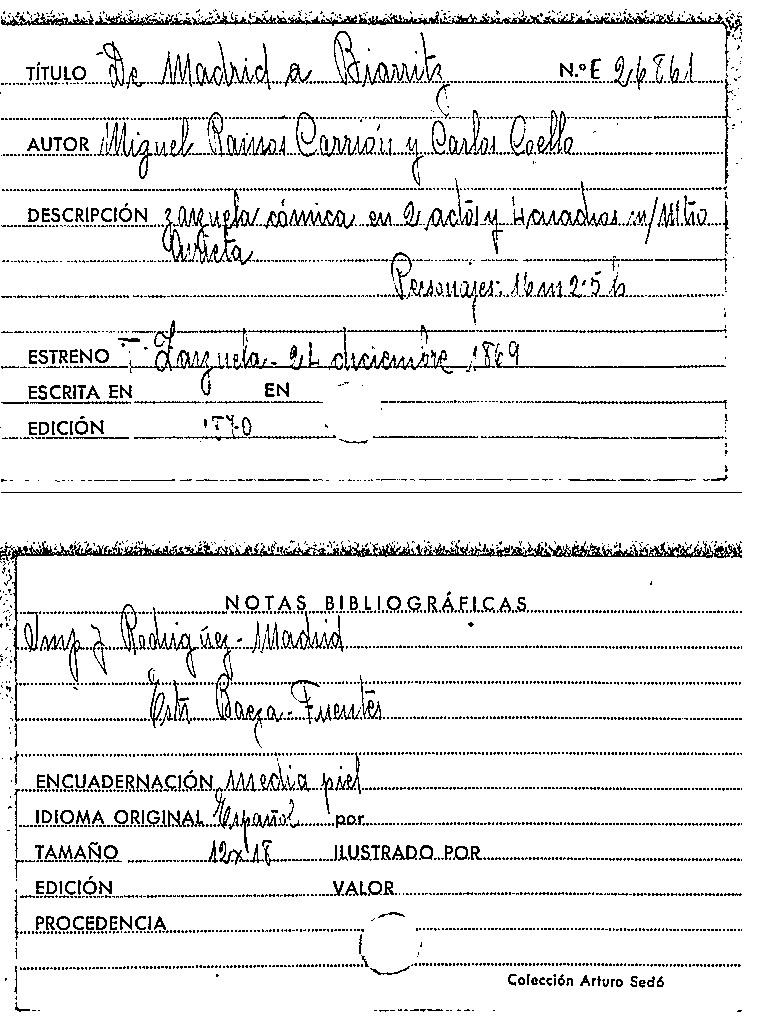 TÍTULO De Madrid a Biarritz N.º E 26861
AUTOR Miguel Ramos Carrión y Carlos Coello
DESCRIPCIÓN zarzuela cómica en 2 actos y 4 cuadros m/Mtro
Arrieta
Personajes: 16 m 2·5 h
ESTRENO T. Zarzuela - 24 diciembre 1869
ESCRITA EN EN
EDICIÓN 1870
NOTAS BIBLIOGRÁFICAS
Imp J Rodriguez - Madrid
Estr Baeza - Fuentes
ENCUADERNACIÓN media piel
IDIOMA ORIGINAL Español por
TAMAÑO 12x18 ILUSTRADO POR
EDICIÓN VALOR
PROCEDENCIA
Colección Arturo Sedó